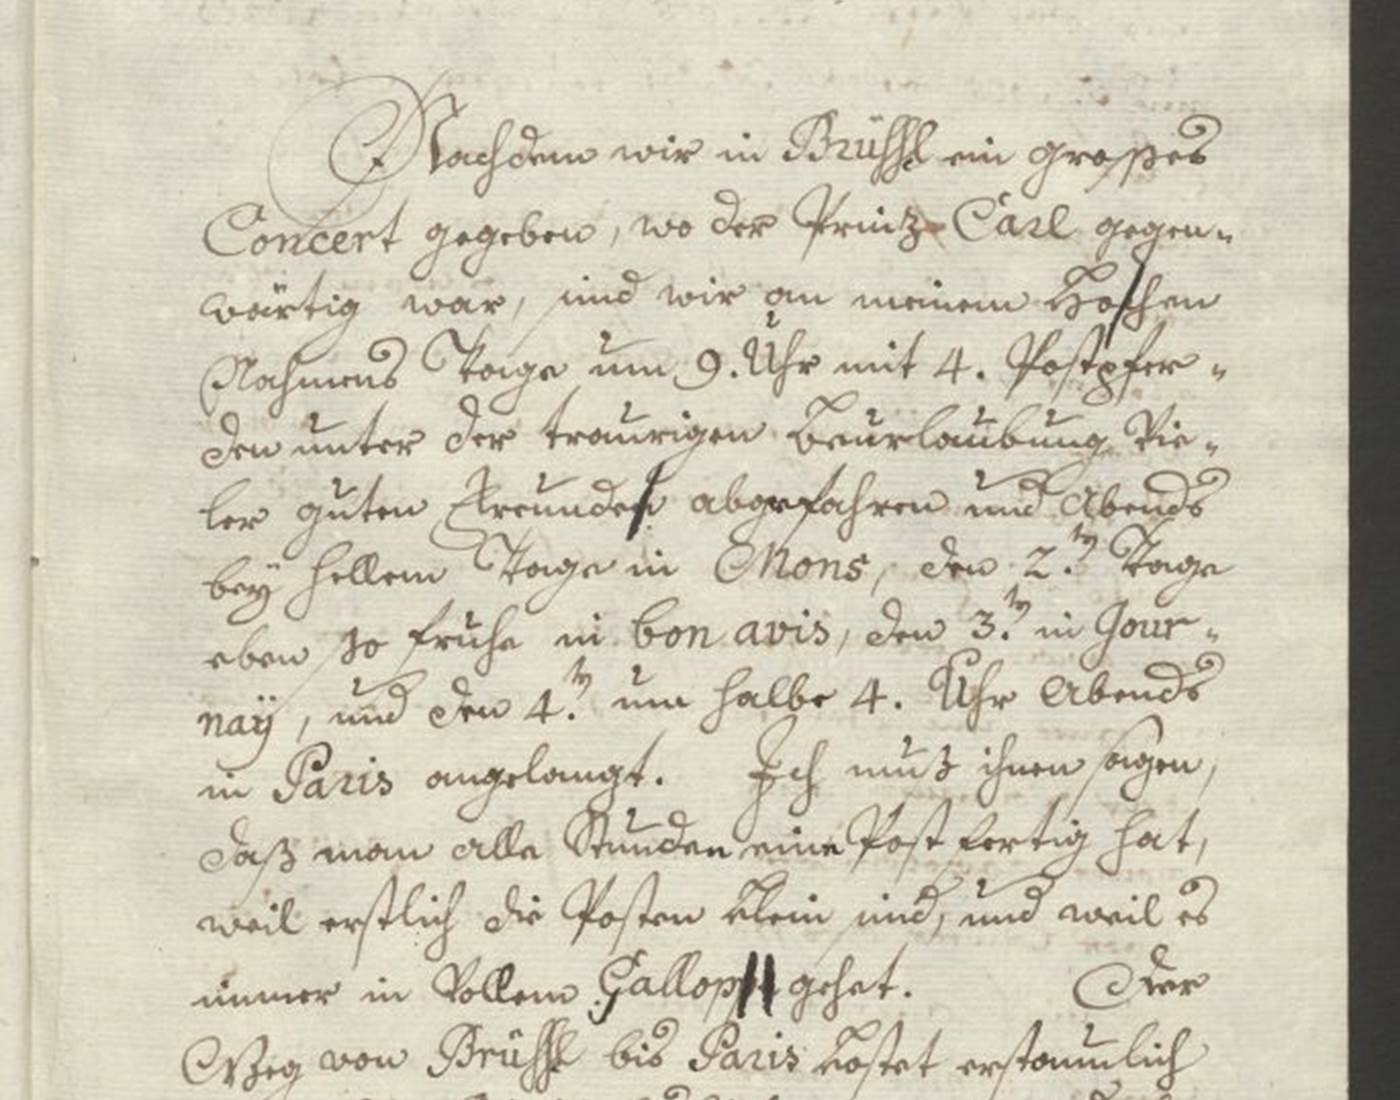 Nachdem wir in Brüßl ein großes
Concert gegeben, wo der Prinz Carl gegen„
wärtig war, sind wir an meinem Hochen
Nahmens Tage um 9. Uhr mit 4. Postpfer„
den unter der traurigen beurlaubung Vie„
ler guten Freunden abgefahren und Abends
bey hellem Tage in Mons, den 2.tn Tage
eben so fruhe in bon avis, den 3.tn in Gour„
naÿ, und den 4.tn um halbe 4. Uhr Abends
in Paris angelangt. Ich muß ihnen sagen,
daß man alle Stunden eine Post fertig hat,
weil erstlich die Posten klein sind, und weil es
immer in Vollem Gallopp gehet. Der
Weg von Brüßl bis Paris kostet erstaunlich